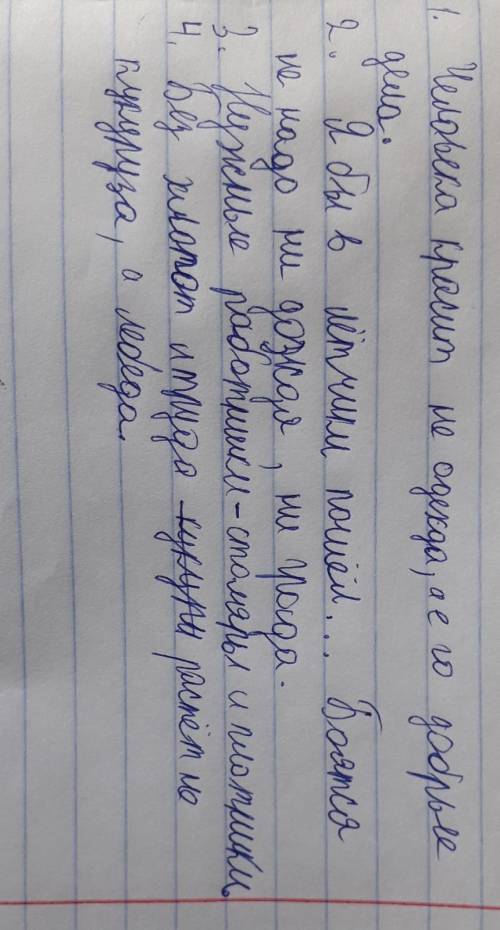 1. Человека красит не одежда, а его добрые
дела.
2. Я бы в лётчики пошёл... Боятся
не надо ни дождя, ни града.
3. Нужные работники - столяры и плотники.
4. Без хлопот и труда кукуры растёт не
кукуруза, а лебеда.